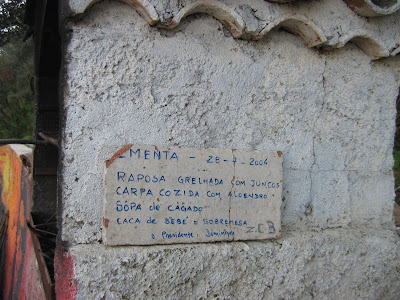 EMENTA - 28-7-2004
RAPOSA GRELHADA COM JUNCOS
CARPA COZIDA COM ALOENDRO
SOPA de CÁGADO
CACA de BÉBÉ = SOBREMESA
O Presidente: Domingos
Z.C.B